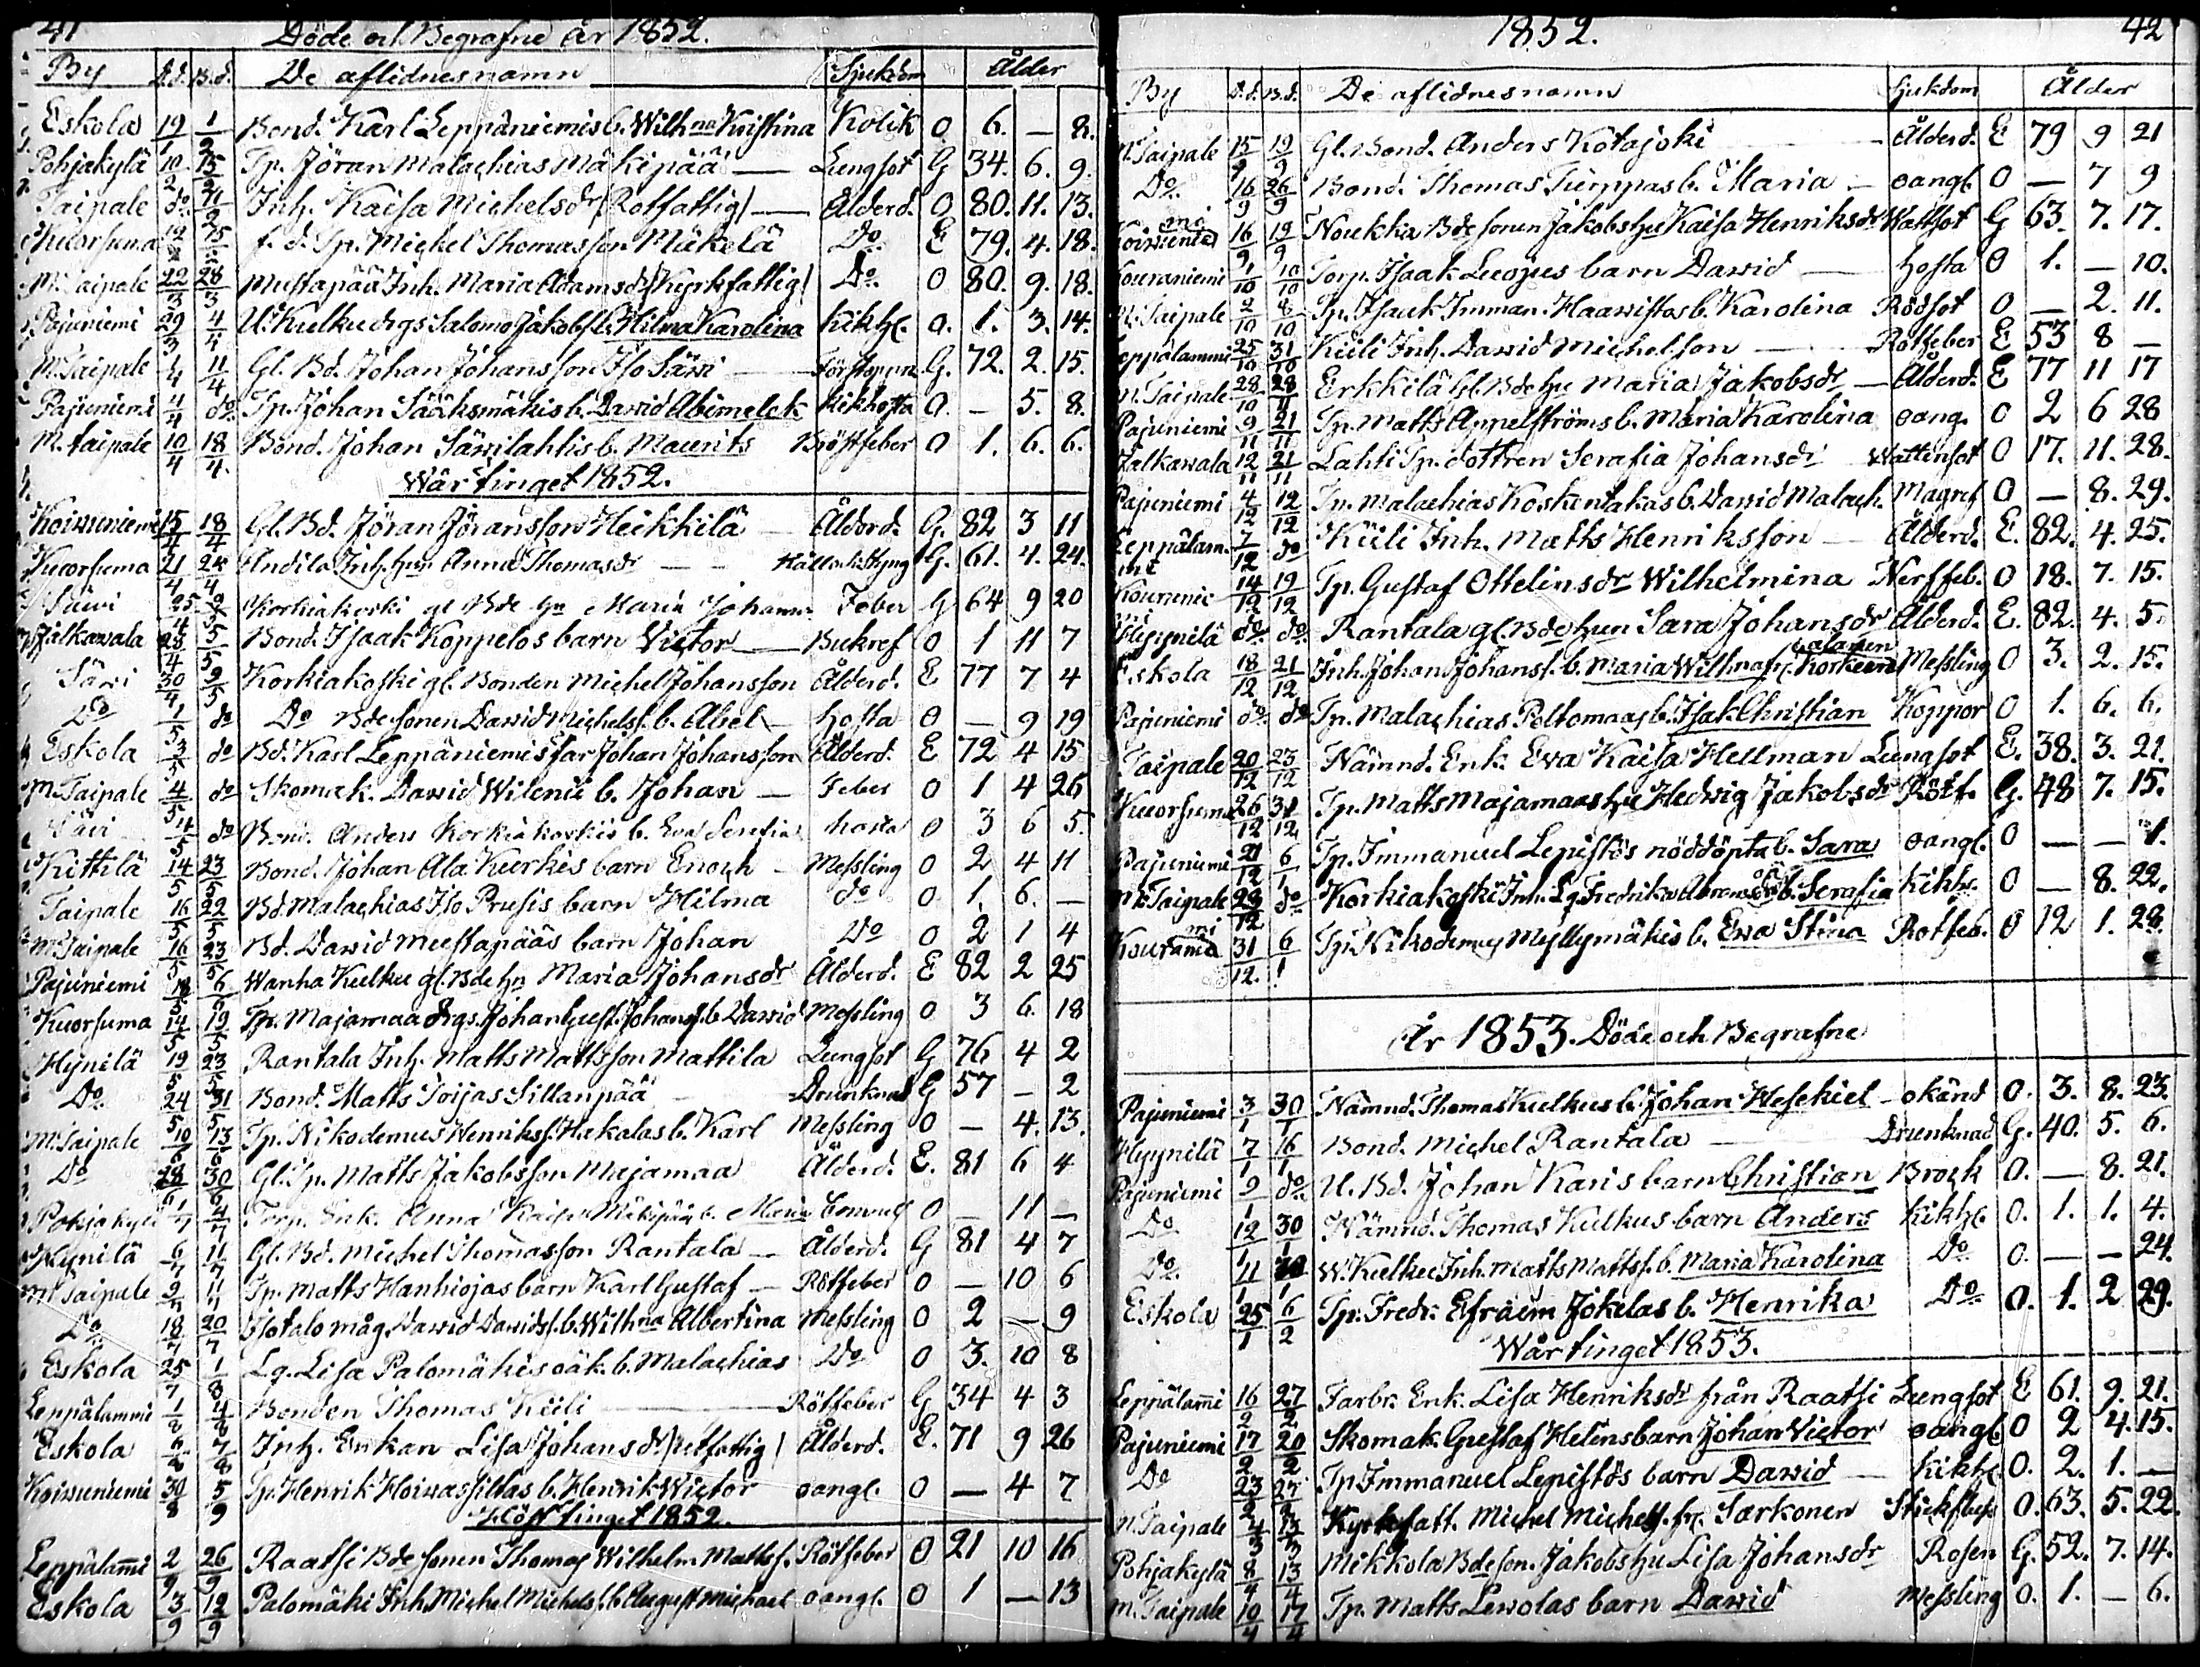 41 Döde och Begrafne år 1852.
By D.d. B.d. De aflidnes namn Sjukdom Ålder
Eskola 19/1 1/2 Bond. Karl Leppäniemis b. Wilh:na Kristina Kolik O 6. — 8.
Pohjakylä 10/2 15/2 Tp. Jöran Malachias Mäkipää — Lungsot G 34. 6. 9.
Taipale do Inh. Kaisa Michelsdr (Rotfattig) — Ålderd. O 80. 11. 13.
Kuorsuma f.d. Tp. Michel Thomasson Mäkelä Do E 79. 4. 18.
M. Taipale 22/3 28/3 Mustapää Inh. Maria Adamsdr (Kyrkfattig) Do. O 80. 9. 18.
Pajuniemi 29/3 4/4 U. Kulku drgs Salomo Jakobs. b. Hilma Karolina kikh. O. 1. 3. 14.
M. Taipale 4/4 11/4 Gl. Bd. Johan Johansson Iso Säwi — Förstoppn. G. 72. 2. 15.
Pajuniemi 4/4 do. Tp. Johan Sääksmäkis b. Dawid Abimelek kikhosta O. — 5. 8.
M. taipale 10/4 18/4. Bond. Johan Säwilahtis b. Maurits Bröstfeber O 1. 6. 6.
Wårtinget 1852.
Koiwuniemi 15/4 18/4 Gl. Bd. Jöran Jöransson Heikkilä Ålderd. G. 82 3 11
Kuorsuma 21/4 Andila Inh. hu. Anna Thomasdr — — Håll o. stÿng G. 61. 4. 24.
Säwi 25/4 Korkiakoski gl Bde hu Maria Johansdr Feber G 64 9 20
Jalkawala 25/4 5/5 Bond. Isaak Koppelos barn Victor — Bukref O 1 11 7
Säwi 30/4 9/5 Korkiakoski gl. Bonden Michel Johansson Ålderd. E 77 7 4
Do 1/5 do Do Bdesonen Dawid Michels. b. Abel — hosta O — 9 19
Eskola 3/5 do Bd. Karl Leppäniemis far Johan Johansson Ålderd. E 72 4 15
M. Taipale 4/5 do Skomak. Dawid Wilenii b. Johan — Feber O 1 4 26
Säwi 4/5 do Bond. Anders Korkiakoskis b. Eva Serafia hosta O 3 6 5.
Kittilä 14/5 23/5 Bond. Johan Ala Kurkis barn Enoch — Messling O 2 4 11
Taipale 16/5 22/5 Bd. Malachias Iso Prusis barn Hilma do O 1. 6. —
M. Taipale 16/5 23/5 Bd. Dawid Mustapääs barn Johan Do O 2 1 4
Pajuniemi 18/5 6/6 Wanha Kulku gl. Bde hu Maria Johansdr Ålderd. E 82 2 25
Kuorsuma 14/5 19/5 Tp. Majamaa drgs. Johan Gust. Johans. b. Dawid Messling O 3 6. 18
Hynilä 19/5 23/5 Rantala Inh. Matts Mattsson Mattila Lungsot G 76 4 2
Do. 24/5 31/5 Bond. Matts Toijas Sillanpää Drunknad G 57 — 2
M. Taipale 10/6 13/6 Tp. Nikodemus Henriks. Hakalas b. Karl Messling O — 4. 13.
Do 28/6 30/6 Gl. Tp. Matts Jakobsson Majamaa Ålderd. E. 81 6 4
Pohjakylä 1/7 4/7 Torp. Enk. Anna Kaisa Mäkipää b. Maria Convuls O — 11 —
Hynilä 6/7 11/7 Gl. Bd. Michel Thomasson Rantala — Ålderd. G 81 4 7
M Taipale 9/7 11/7 Tp. Matts Hanhiojas barn Karl Gustaf — Rötfeber O — 10 6
Do. 18/7 20/7 Isotalo måg. Dawid Dawids. b. Wilh:na Albertina Messling O 2 — 9
Eskola 25/7 1/8 Lq. Lisa Palomäkis oäk. b. Malachias Do O 3. 10 8
Leppälammi 1/8 4/8 Bonden Thomas Kiili — Rötfeber G 34 4 3
Eskola 7/8 Inh. Enkan Lisa Johansdr (rotfattig) Ålderd. E. 71 9 26
Koiwuniemi 30/8 5/9 Tp. Henrik Hoiwassiltas b. Henrik Wictor oangl. O — 4 7
Hösttinget 1852.
Leppälam̄i 2/9 26/9 Raatsi Bdesonen Thomas Wilhelm Matts. Rötfeber O 21 10 16
Eskola 3/9 12/9 Palomäki Inh. Michel Michels. b. August Michael oangl. O 1 — 13
1852. 42
By D.d. B.d. De aflidnes namn Sjukdom Ålder
M. Taipale 15/9 19/9 Gl. Bond. Anders Kotajoki — Ålderd. E 79 9 21
Do. 16/9 26/9 Bond. Thomas Turppas b. Maria — oangl. O — 7 9
Koiwuniemi 16/9 19/9 Noukka Bdesonen Jakobs hu Kaisa Henriksdr Wattsot G 63. 7. 17.
Kouraniemi 9/10 10/10 Torp. Isaak Luojus barn Dawid — hosta O 1. — 10.
M. Taipale 2/10 8/10 Tp. Isaak Imman. Haawistos b. Karolina Rödsot O — 2. 11.
Leppälammi 25/10 31/10 Kiili Inh. Dawid Michelsson — Rötfeber E 53 8 —
M. Taipale 28/10 28/11 Erkkilä Gl. Bde hu Maria Jakobsdr — Ålderd. E 77 11 17
Pajuniemi 9/11 21/11 Tp. Matts Appelströms b. Maria Karolina oang. O 2 6 28
Jalkawala 12/11 21/11 Lahti Tp. dottren Serafia Johansdr Wattensot O 17. 11. 28.
Pajuniemi 4/12 12/12 Tp. Malachias Koskentakas b. Dawid Malach. Magref O — 8. 29.
Leppälammi 7/12 do Kiili Inh. Matts Henriksson — Ålderd. E. 82. 4. 25.
14/12 19/12 Tp. Gustaf Ottelins dr Wilhelmina Nerffeb. O 18. 7. 15.
Hyynilä do. do. Rantala gl. Bde hun Sara Johansdr Ålderd. E. 82. 4. 5.
Eskola 18/12 21/12 Inh. Johan Johans. b. Maria Wilh:na fr. Korkeen Messling O 3. 2. 15.
Pajuniemi do. do Tp. Malachias Peltomaas b. Isak Christian Koppor O 1. 6. 6.
Taipale 20/12 23/12 Nämnd. Enk. Eva Kaisa Hellman Lungsot E. 38. 3. 21.
Kuorsuma 26/12 31/12 Tp. Matts Majamaas hu Hedwig Jakobsdr Rötf. G. 48 7. 15.
Pajuniemi 21/12 6/1 Tp. Immanuel Lepistös nöddöpta b. Sara oangl. O — — 1.
M. Taipale 29/12 do Korkiakoski Inh. Lq. Fredrika Abramsdr oä b. Serafia kikh. O — 8. 22.
Kouraniemi 31/12. 6/1 Tp. Nikodemus Myllymäkis b. Ewa Stina Rotfeb. O 12 1. 28.
År 1853. Döde och Begrafne
Pajuniemi 3/1 30/1 Nämnd. Thomas Kulkus b. Johan Hesekiel — okänd O. 3. 8. 23.
Hyynilä 7/1 16/1 Bond. Michel Rantala — Drunknad G. 40. 5. 6.
Pajuniemi 9/1 do U. Bd. Johan Karis barn Christian Brock O. — 8. 21.
Do 12/1 30/1 Nämnd. Thomas Kulkus barn Anders kikh. O. 1. 1. 4.
Do. 11/1 W. Kulku Inh. Matts Matts. b. Maria Karolina Do O. — — 24.
Eskola 25/1 6/2 Tp. Fredr. Efraim Jokelas b. Henrika Do O. 1. 2 29.
Wårtinget 1853.
Leppälam̄i 16/2 27/2 Farbr. Enk. Lisa Henriksdr från Raatsi Lungsot E 61. 9. 21.
Pajuniemi 17/2 20/2 Skomak. Gustaf Helins barn Johan Victor oangl. O 2 4. 15.
Do 23/2 27/2 Tp. Immanuel Lepistös barn Dawid — kikh. O. 2. 1. —
M. Taipale 4/3 13/3 Kyrkofatt. Michel Michels. fr. Sarkonen Stickfluss O. 63. 5. 22.
Pohjakylä 8/4 13/4 Mikkola Bdeson. Jakobs hu Lisa Johansdr Rosen G. 52. 7. 14.
M. Taipale 10/4 17/4 Tp. Matts Lewolas barn Dawid Messling O. 1. — 6.